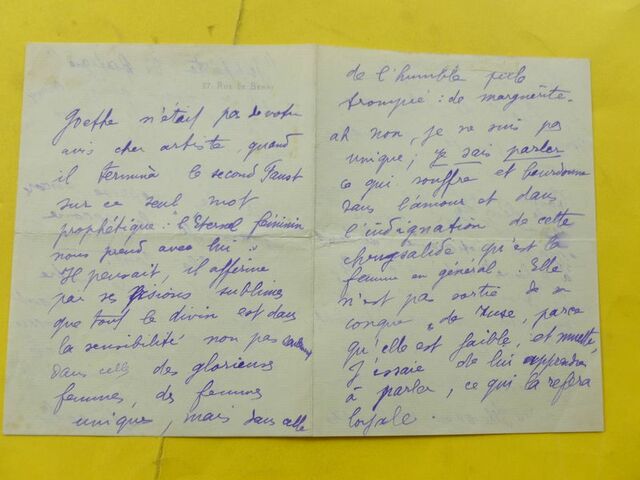 27, Rue de Berri
Goethe n'était pas de votre
avis cher artiste, quand
il termina le second Faust
sur ce seul mot
prophétique : l'Eternel féminin
nous prend avec lui"
Il pensait, il affirme
par ses visions sublimes
que tout le divin est dans
la sensibilité non pas
dans celle des glorieuses
femmes, des femmes
uniques, mais dans celle
de l'humble
trompée : de marguerite.
ah non, je ne suis pas
unique ; je sais parler
ce qui souffre et bourdonne
dans l'amour et dans
l'indignation de cette
chrysalide qu'est la
femme en général. Elle
n'est pas sortie de sa
conque de ruse, parce
qu'elle est faible, et muette,
j'essaie de lui apprendre
à parler, ce qui la refera
loyale.